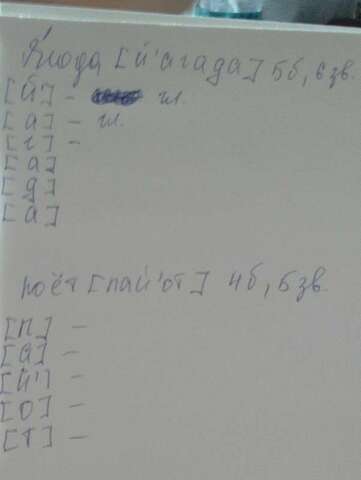 Ягода [й'агада] 5б, 6 зв.
[й] - гл.
[а] - гл.
[г] -
[а]
[д]
[а]
поёт [пай'от] 4б, 5 зв.
[п] -
[а] -
[й'] -
[о] -
[т] -